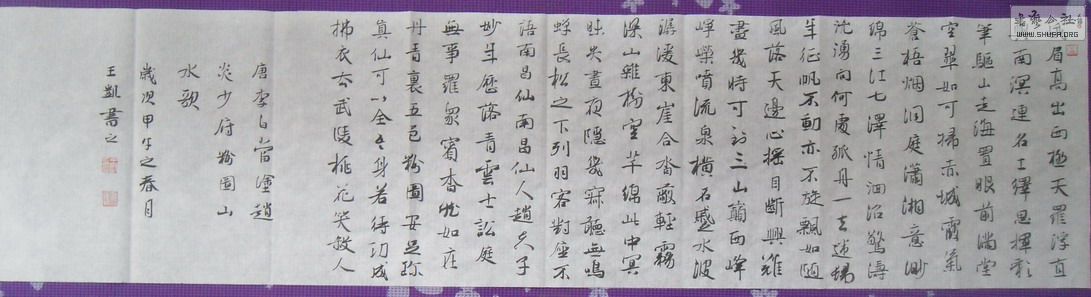 眉高出西極天羅浮直
南溟連名工繹思揮彩
筆驅山走海置眼前滿堂
空翠如可掃赤城霞氣
蒼梧烟洞庭瀟湘意渺
綿三江七澤情洄沿驚濤
洶湧向何處孤舟一去迷歸
年征帆不動亦不旋飄如隨
風落天邊心搖目斷興難
盡幾時可到三山巔西峰
崢嶸噴流泉橫石蹙水波
潺湲東崖合沓蔽輕霧
深山雜樹空芊綿此中冥
昧失晝夜隱幾寂聽無鳴
蟬長松之下列羽客對座不
語南昌仙南昌仙人趙夫子
妙年歷落青雲士訟庭
無事羅衆賓杳然如在
丹青裏五色粉圖安足珍
真仙可以全吾身若待功成
拂衣去武陵桃花笑殺人
唐李白當塗趙
炎少府粉圖山
水歌
歲次甲午之春月
王凱書之
WWW.SHUFA.ORG